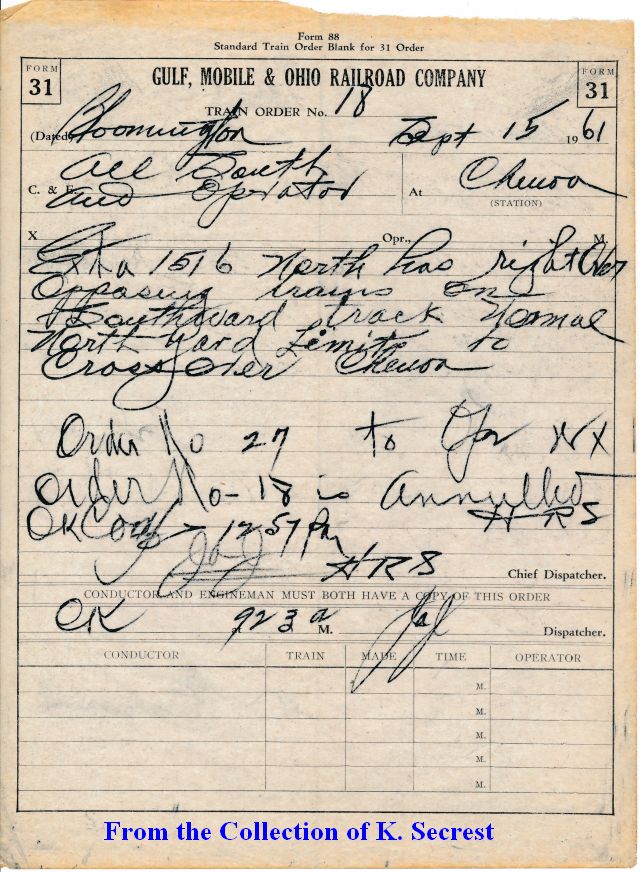 Form 88
Standard Train Order Blank for 31 Order
FORM 31
GULF, MOBILE & OHIO RAILROAD COMPANY
FORM 31
TRAIN ORDER No. 18
(Dated) Bloomington Sept 15 1961
C. & E. All South and Operator At Chenoa
(STATION)
X Opr., M
Exta 1516 North has right Over
Opposing trains on
Southward track Normal
North yard Limits to
Cross Over Chenoa
Order No 27 to Opr
Order No-18 is Annulled
HRS
OK 1257 Pm
JaJ HRS Chief Dispatcher.
CONDUCTOR AND ENGINEMAN MUST BOTH HAVE A COPY OF THIS ORDER
OK 923 a M. JaJ Dispatcher.
CONDUCTOR TRAIN MADE TIME OPERATOR
M.
M.
M.
M.
M.
From the Collection of K. Secrest